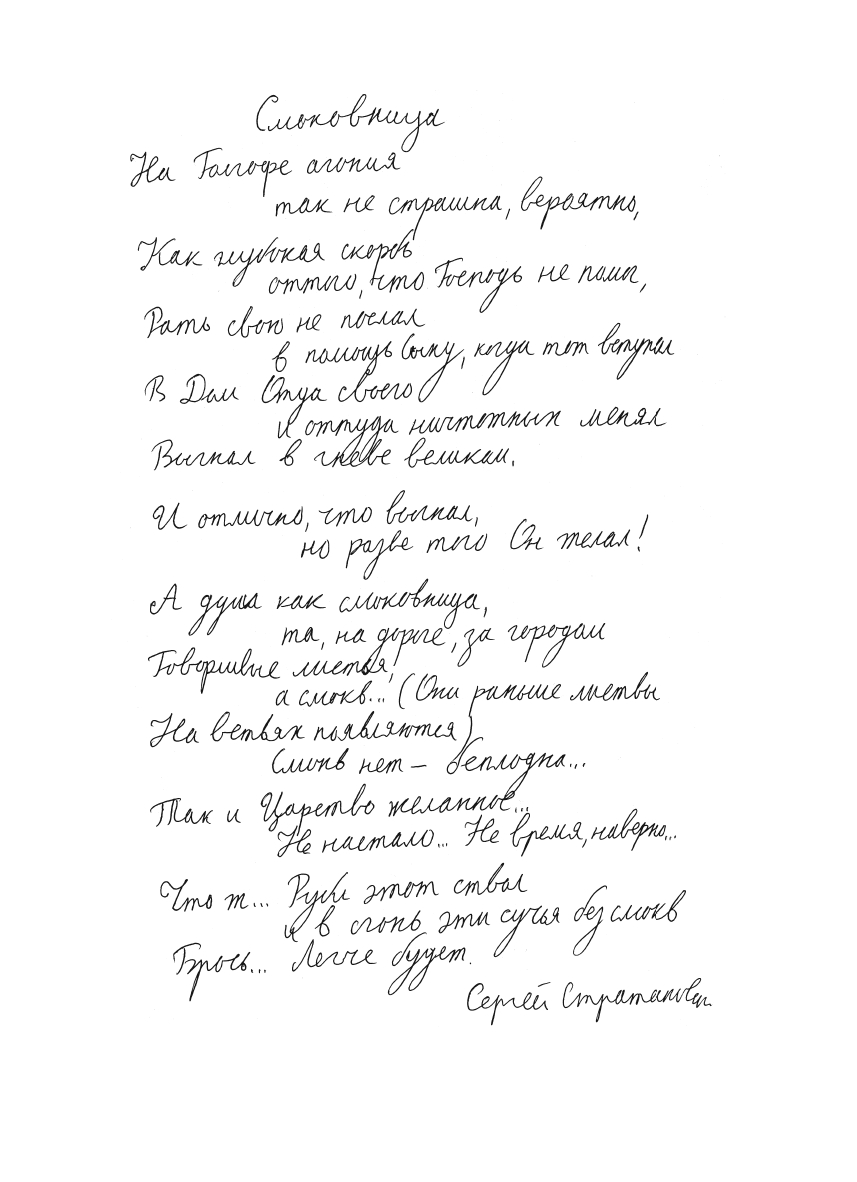 Смоковница
На Голгофе агония
так не страшна, вероятно,
Как глубокая скорбь
оттого, что Господь не помог,
Рать свою не послал
в помощь Сыну, когда тот вступал
В Дом Отца своего
и оттуда ничтожных менял
Выгнал в гневе великом.
И отлично, что выгнал,
но разве того Он желал!
А душа как смоковница,
та, на дороге, за городом
Говорливые листья!
а смокв... (Они раньше листвы
На ветвях появляются)
Смокв нет – бесплодна...
Так и Царство желанное...
Не настало... Не время, наверно...
Что ж... Руби этот ствол
и в огонь эти сучья без смокв
Брось... Легче будет.
Сергей Стратановский